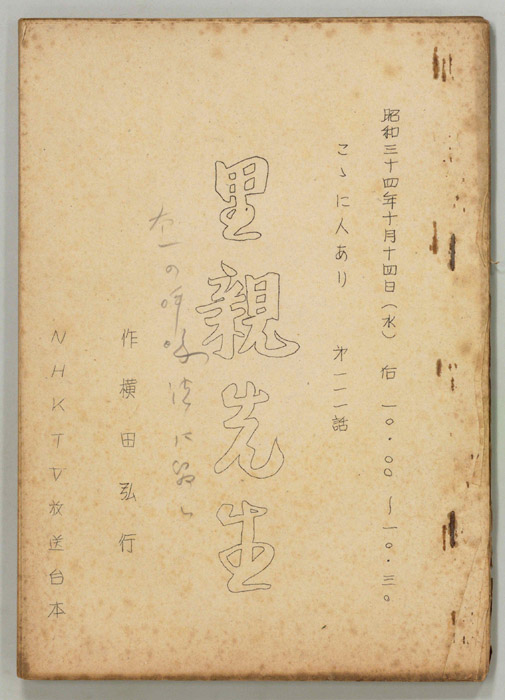 昭和三十四年十月十四日(水) 后 一〇・〇〇～一〇・三〇
こゝに人あり 第一一一話
里親先生
作 横田弘行
NHKTV放送台本